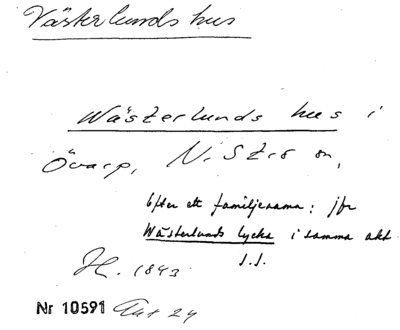 Västerlunds hus
Wästerlunds hus i
Övarp, N. Strö sn,
Efter ett familjenamn: jfr
Wästerlunds lycka i samma akt
s.s.
Nr 10591